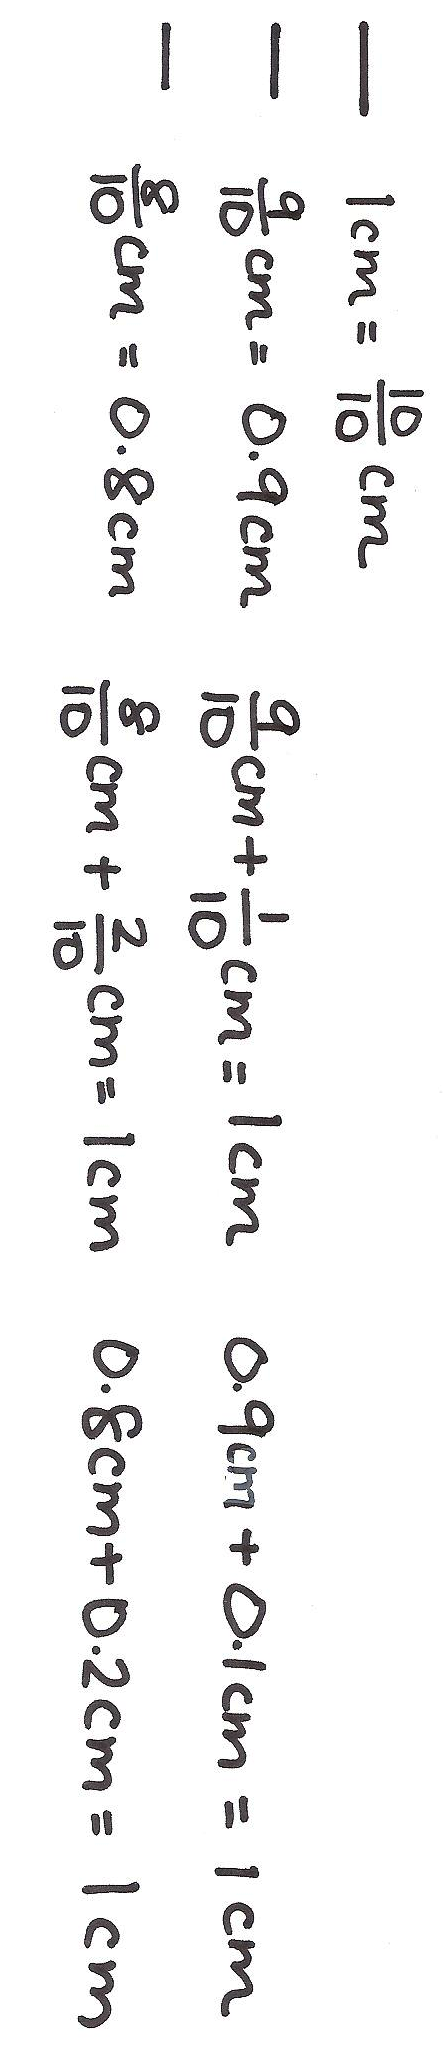 1cm = 10/10 cm
9/10 cm = 0.9cm 9/10 cm + 1/10 cm = 1cm 0.9cm + 0.1cm = 1cm
8/10 cm = 0.8cm 8/10 cm + 2/10 cm = 1cm 0.8cm + 0.2cm = 1cm